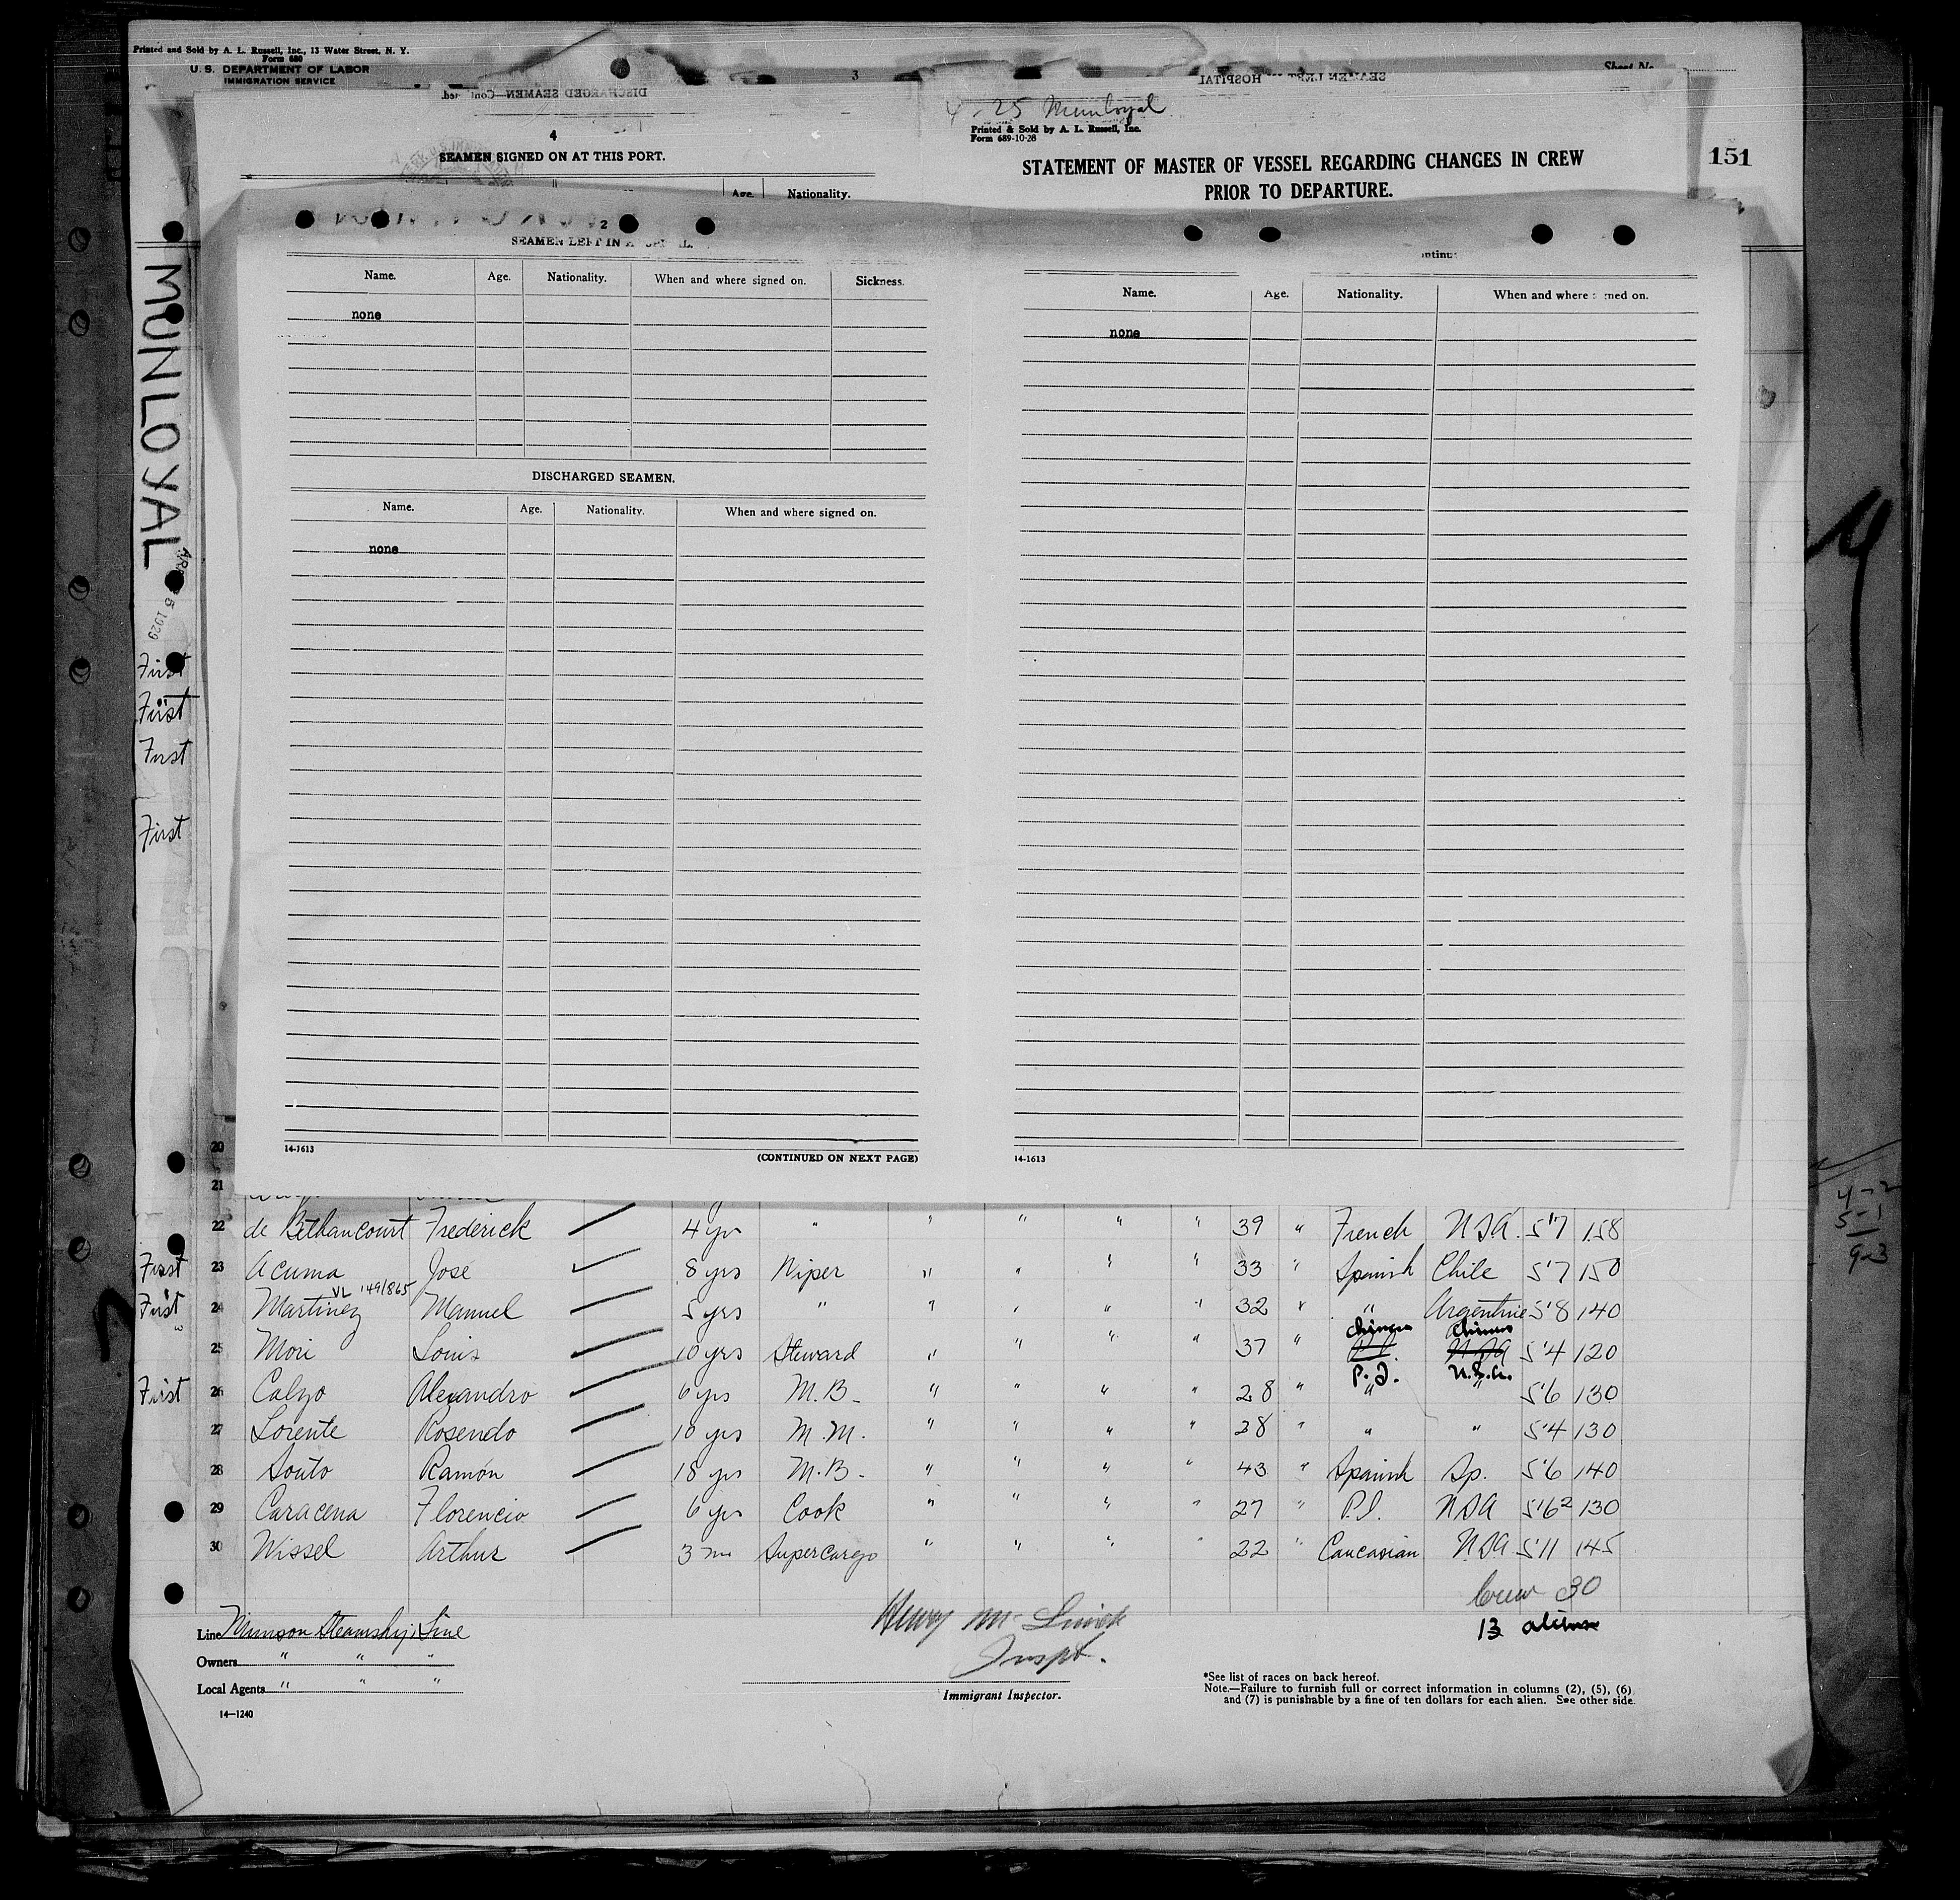 Printed and Sold by A. L. Russell, Inc., 13 Water Street, N. Y.
Form 680
U. S. DEPARTMENT OF LABOR
IMMIGRATION SERVICE
3
Sheet No.
SEAMEN LEFT HOSPITAL
DISCHARGED SEAMEN—Continued
4
SEAMEN SIGNED ON AT THIS PORT.
Age. Nationality.
4-25 Munloyal
Printed & Sold by A. L. Russell, Inc.
Form 689-10-28
STATEMENT OF MASTER OF VESSEL REGARDING CHANGES IN CREW
PRIOR TO DEPARTURE.
151
MUNLOYAL
5 1929
First
First
First
First
2
SEAMEN LEFT IN
Name. Age. Nationality. When and where signed on. Sickness.
none
DISCHARGED SEAMEN.
Name. Age. Nationality. When and where signed on.
none
14-1613
(CONTINUED ON NEXT PAGE)
Name. Age. Nationality. When and where signed on.
none
14-1613
20
21
22 de Bethancourt Frederick 4 yrs " " " " " 39 " French USA 5'7 158
First 23 Acuma Jose 8 yrs Wiper " " " " 33 " Spanish Chile 5'7 150
VL 149/865
First 24 Martinez Manuel 5 yrs " " " " " 32 " " Argentine 5'8 140
Chinese Chinese
25 Mori Louis 10 yrs Steward " " " " 37 " P.I. USA 5'4 120
P.I. U.S.A.
First 26 Calzo Alexandro 6 yrs M.B. " " " " 28 " " " 5'6 130
27 Lorente Rosendo 10 yrs M.M. " " " " 28 " " " 5'4 130
28 Souto Ramón 18 yrs M.B. " " " " 43 " Spanish Sp. 5'6 140
29 Caracena Florencio 6 yrs Cook " " " " 27 " P.I. USA 5'6² 130
30 Wissel Arthur 3 mo Supercargo " " " " 22 " Caucasian USA 5'11 145
Crew 30
13 aliens
Line Munson Steamship Line
Owners " " "
Local Agents " " "
14—1240
Henry
Inspt.
Immigrant Inspector.
*See list of races on back hereof.
Note.—Failure to furnish full or correct information in columns (2), (5), (6)
and (7) is punishable by a fine of ten dollars for each alien. See other side.
4-2
5-1
9-3